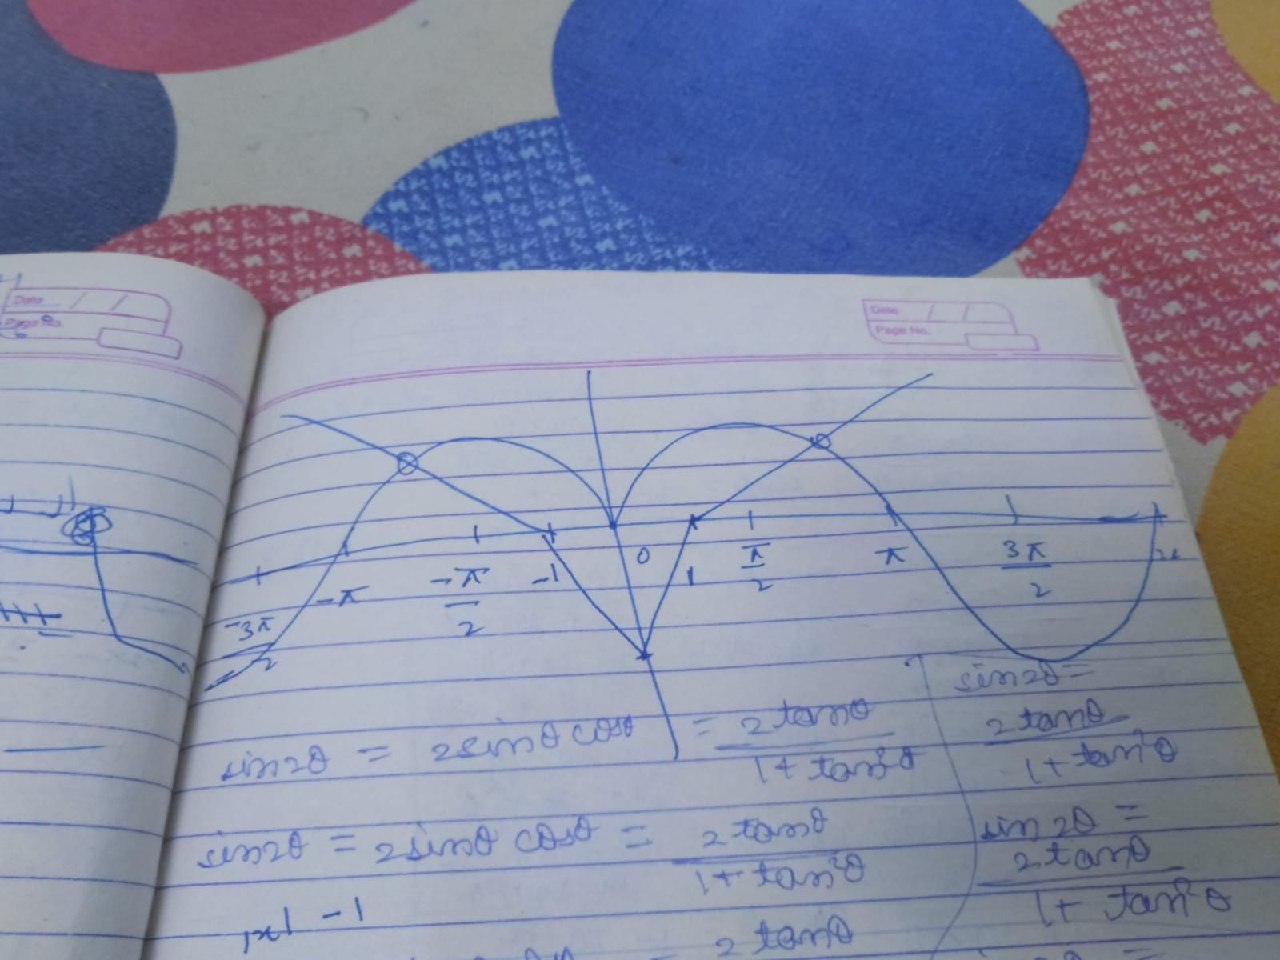 Date / /
Page No.
Date / /
Page No.
-3π/2 -π -π/2 -1 0 1 π/2 π 3π/2
sin2θ = 2sinθ cosθ = 2tanθ/1+tan²θ
sin2θ = 2tanθ/1+tan²θ
sin2θ = 2sinθ cosθ = 2tanθ/1+tan²θ
sin2θ = 2tanθ/1+tan²θ
|x| - 1
= 2tanθ